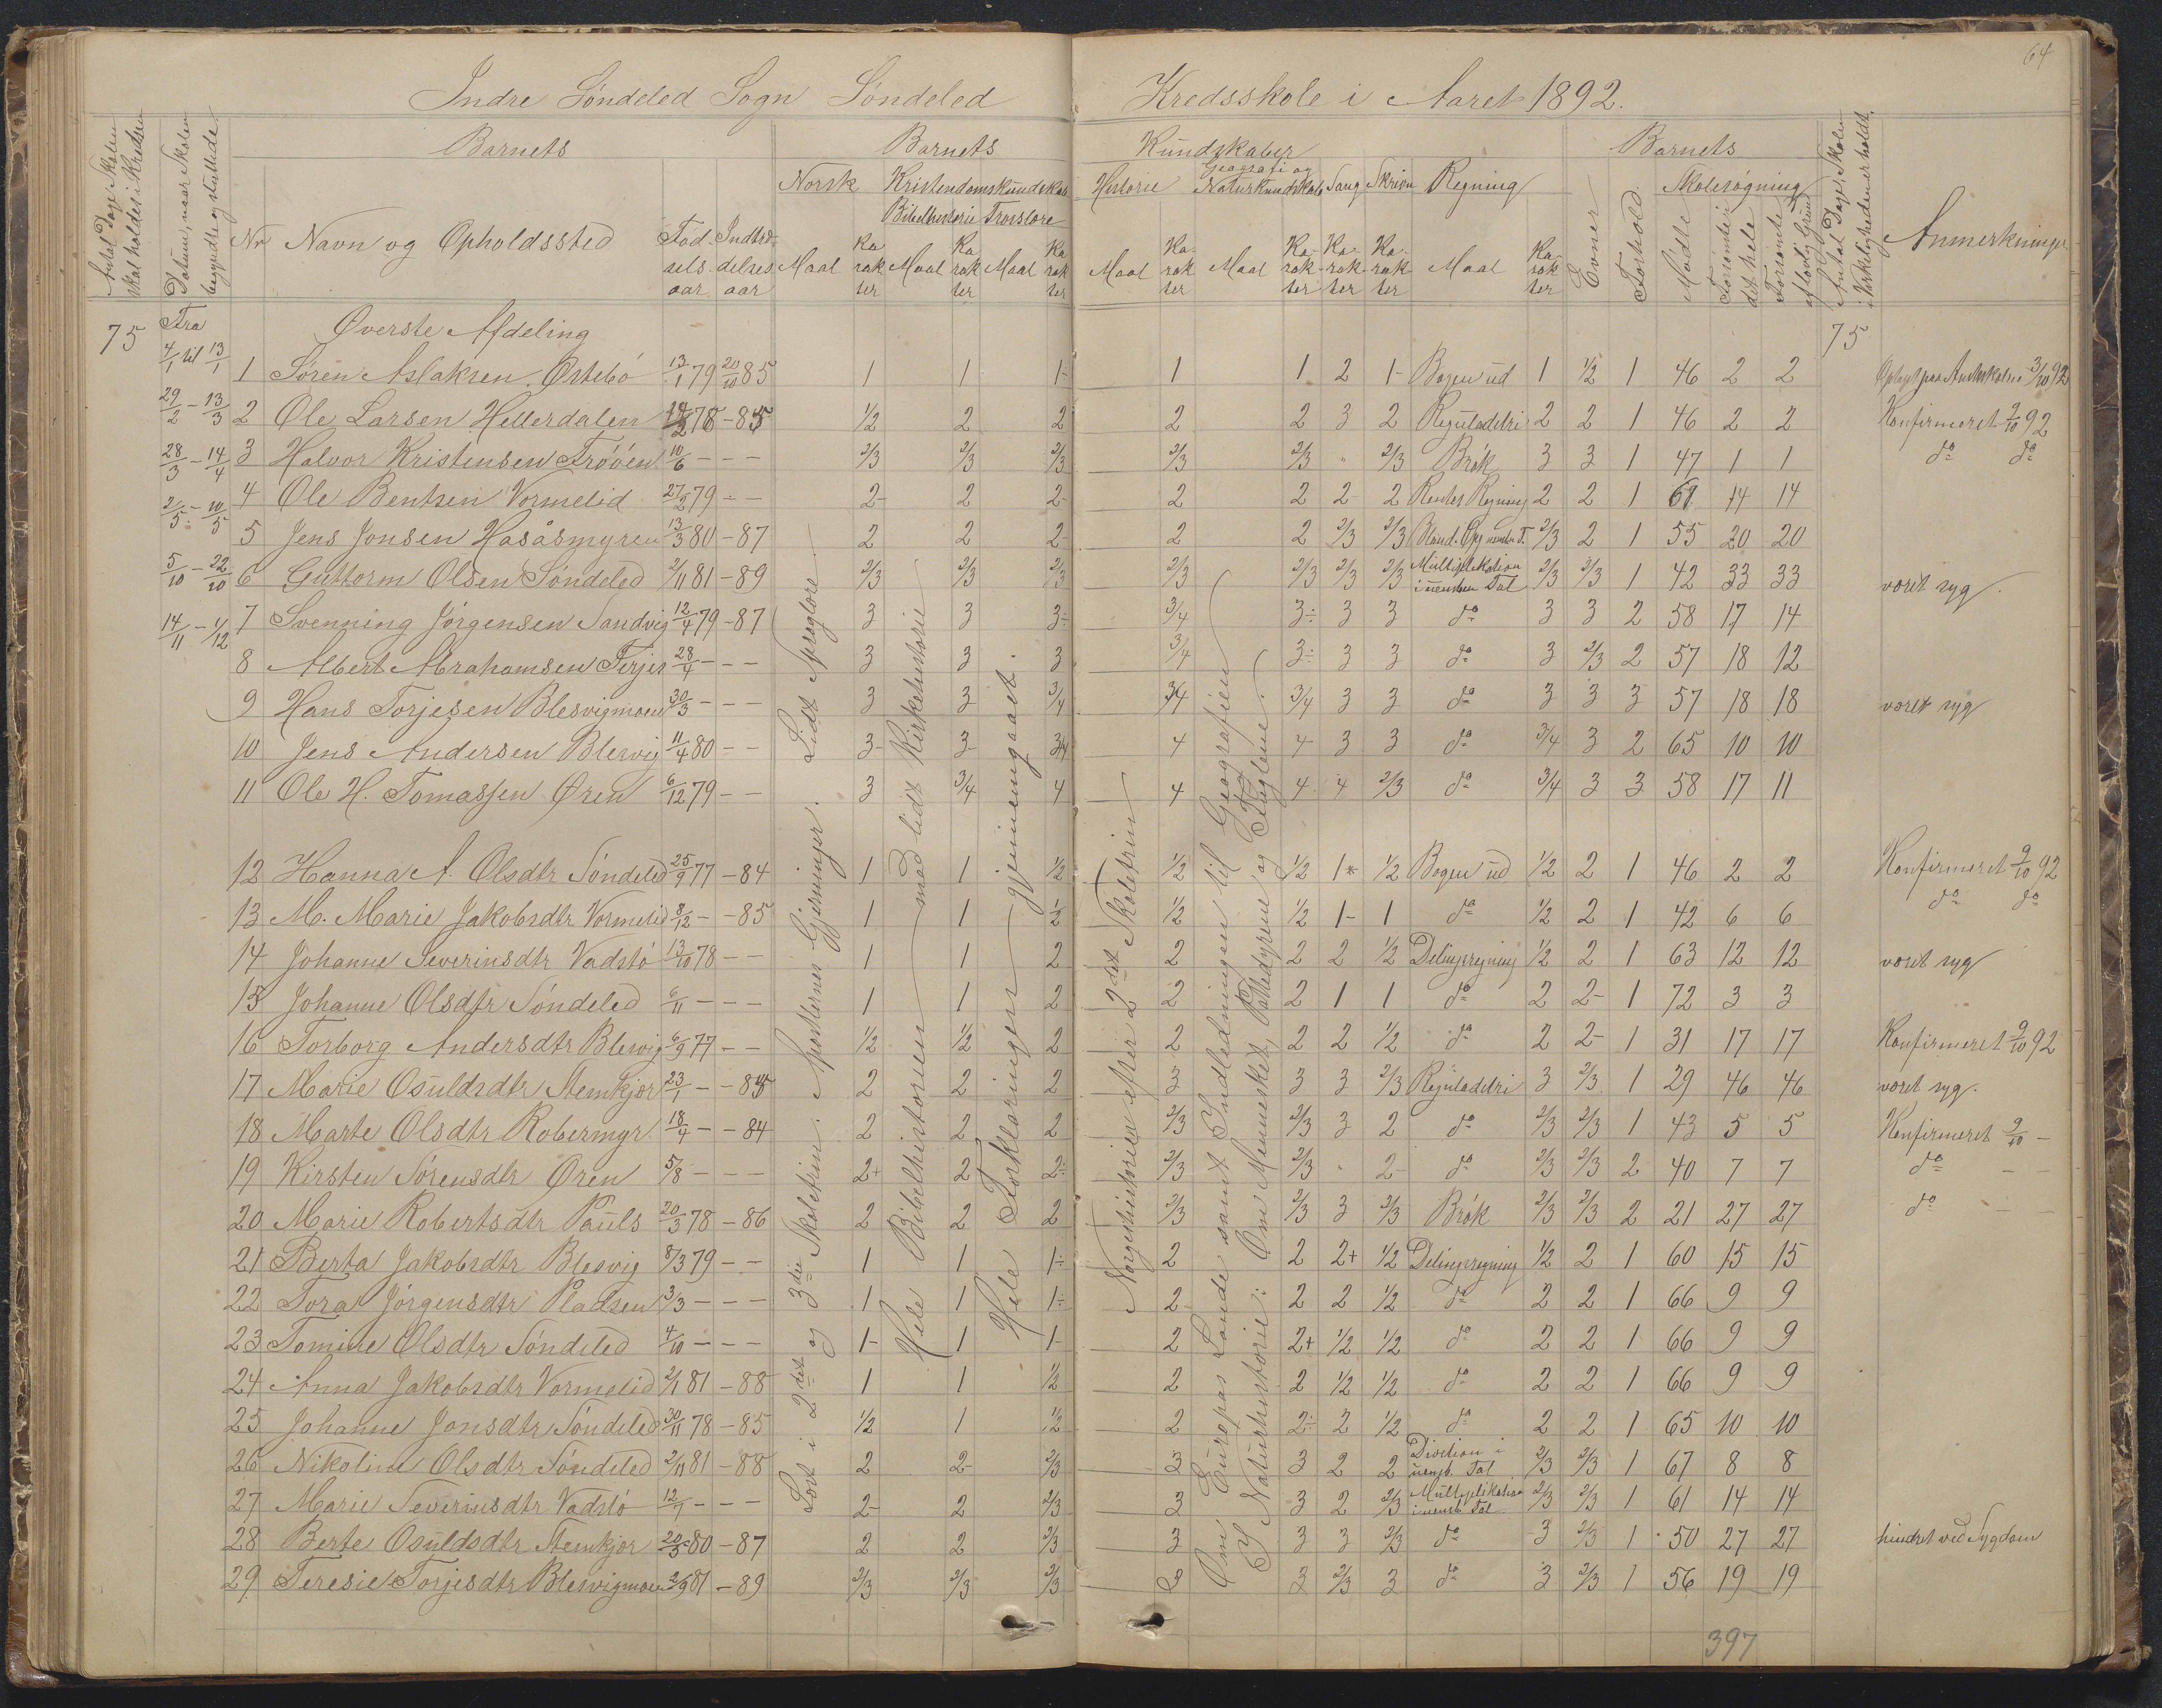 64
Indre Söndeled Sogn Söndeled Kredsskole i Aaret 1892.
Antal Dage, Skolen skal holdes i Kredsen
Datum, naar Skolen begyndte og sluttede
Barnets
Barnets Kundskaber
Barnets
Norsk Kristendomskundskab Historie Geografi og Naturkundskab Sang Skrivn Regning
Skolesøgning
Bibelhistorie Troeslære
Nr Navn og Opholdssted Fødselsaar Indtrædelsesaar Maal Karakter Maal Karakter Maal Karakter Maal Karakter Maal Karakter Karakter Karakter Maal Karakter Evner Forhold Mødte Forsömte det hele Forsömte af lovlig Grund
Antal Dage, Skolen i Virkeligheden er holdt.
Anmerkninger
75 Fra Øverste Afdeling 75
4/1 til 13/1
29/2 - 13/3
28/3 - 14/4
2/5 - 10/5
5/10 - 22/10
14/11 - 1/12
1 Sören Aslaksen Östebö 13/1 79 20/10 85 1 1 1- 1 1 2 1- Bogen ud 1 1/2 1 46 2 2 Optagt paa Amtsskolen 3/10 92
2 Ole Larsen Hellerdalen 78 -85 1/2 2 2 2 2 3 2 Reguladetri 2 2 1 46 2 2 Konfirmeret 9/10 92
3 Halvor Kristensen Tröóen 10/6 - - - 2/3 2/3 2/3 2/3 2/3 " 2/3 Brök 3 3 1 47 1 1 do do
4 Ole Bentsen Vormelid 27/2 79 - - 2- 2 2- 2 2 2- 2 Rentes Regning 2 2 1 61 14 14
5 Jens Jonsen Hasåsmyren 13/3 80 - 87 2 2 2- 2 2 2/3 2/3 2/3 2 1 55 20 20
6 Guttorm Olsen Söndeled 2/11 81 - 89 2/3 2/3 2/3 2/3 2/3 2/3 2/3 Multiplikation i uensben Tal 2/3 2/3 1 42 33 33 været syg.
7 Svenning Jörgensen Sandvig 12/4 79 - 87 3 3 3÷ 3/4 3÷ 3 3 do 3 3 2 58 17 14
8 Albert Abrahamsen Terjes 28/4 - - - 3 3 3 3/4 3÷ 3 3 do 3 2/3 2 57 18 12
9 Hans Torjesen Blesvigmoen 30/3 - - - 3 3- 3/4 3/4 3/4 3 3 do 3 3 3 57 18 18 været syg
10 Jens Andersen Blesvig 11/4 80 - - 3- 3- 3/4 4 4 3 3 do 3/4 3 2 65 10 10
11 Ole H. Tomassen Øren 6/12 79 - - 3 3/4 4 4 4 4 2/3 do 3/4 3 3 58 17 11
12 Hanna A. Olsdtr Söndeled 25/9 77 - 84 1 1 1/2 1/2 1/2 1* 1/2 Bogen ud 1/2 2 1 46 2 2 Konfirmeret 9/10 92
13 M. Marie Jakobsdtr Vormelid 8/12 - - 85 1 1 1/2 1/2 1/2 1- 1 do 1/2 2 1 42 6 6 do do
14 Johanne Severinsdtr Vadstö 13/10 78 - - 1 1 2 2 2 2 1/2 Delingsregning 1/2 2 1 63 12 12 været syg
15 Johanne Olsdtr Söndeled 6/11 - - - 1 1 2 2 2 1 1 do 2 2- 1 72 3 3
16 Torborg Andersdtr Blesvig 6/9 77 - - 1/2 1/2 2 2 2 2 1/2 do 2 2- 1 31 17 17 Konfirmeret 9/10 92
17 Marie Osuldsdtr Stemkjær 23/1 - - 85 2 2 2 3 3 3 2/3 Reguladetri 3 2/3 1 29 46 46 været syg.
18 Marte Olsdtr Robermyr 18/4 - - 84 2 2 2 2/3 2/3 3 2 do 2/3 2/3 1 43 5 5 Konfirmeret 9/10 -
19 Kirsten Sörensdtr Øren 5/8 - - - 2+ 2 2÷ 2/3 2/3 " 2- do 2/3 2/3 2 40 7 7 do - -
20 Marie Robertsdtr Pauls 20/3 78 - 86 2 2 2 2/3 2/3 3 2/3 Brök 2/3 2/3 2 21 27 27 do - -
21 Berta Jakobsdtr Blesvig 8/3 79 - - 1 1 1÷ 2 2 2+ 1/2 Delingsregning 1/2 2 1 60 15 15
22 Tora Jörgensdtr Pladsen 3/3 - - - 1 1 1÷ 2 2 2 1/2 do 2 2 1 66 9 9
23 Tomine Olsdtr Söndeled 4/10 - - - 1- 1 1- 2 2+ 1/2 1/2 do 2 2 1 66 9 9
24 Anna Jakobsdtr Vormelid 2/1 81 - 88 1 1 1/2 2 2 1/2 1/2 do 2 2 1 66 9 9
25 Johanne Jonsdtr Söndeled 30/11 78 - 85 1/2 1 1/2 2 2÷ 2 1/2 do 2 2 1 65 10 10
26 Nikoline Olsdtr Söndeled 2/11 81 - 88 2 2- 2/3 3 3 2 2 Division i uensb. Tal 2/3 2/3 1 67 8 8
27 Marie Severinsdtr Vadstö 12/7 - - - 2- 2 2/3 3 3 2 2/3 Multiplikation i uensb Tal 2/3 2/3 1 61 14 14
28 Berte Osuldsdtr Stemkjær 20/5 80 - 87 2 2 2/3 3 3 3 2/3 do 3 2/3 1 50 27 27 hindret ved Sygdom
29 Teresie Torjesdtr Blesvigmoen 2/9 81 - 89 2/3 2/3 2/3 3 3 2/3 3 do 3 2/3 1 56 19 19
Læst i 2det og 3die Skoletrin: Apostlernes Gjerninger. Lidt Sproglære.
Hele Bibelhistorien med lidt Kirkehistorie
Hele Forklaringen gjennemgaaet.
Norgeshistorie efter 2det Skoletrin
Om Europas Lande samt Indledningen til Geografien
I Naturhistorie: Om Mennesket, Pattedyrene og Fuglene.
397